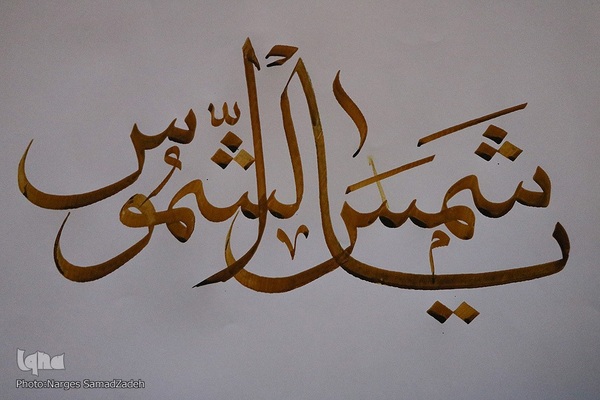 یا شمس الشموس
iqna
Photo:Narges SamadZadeh